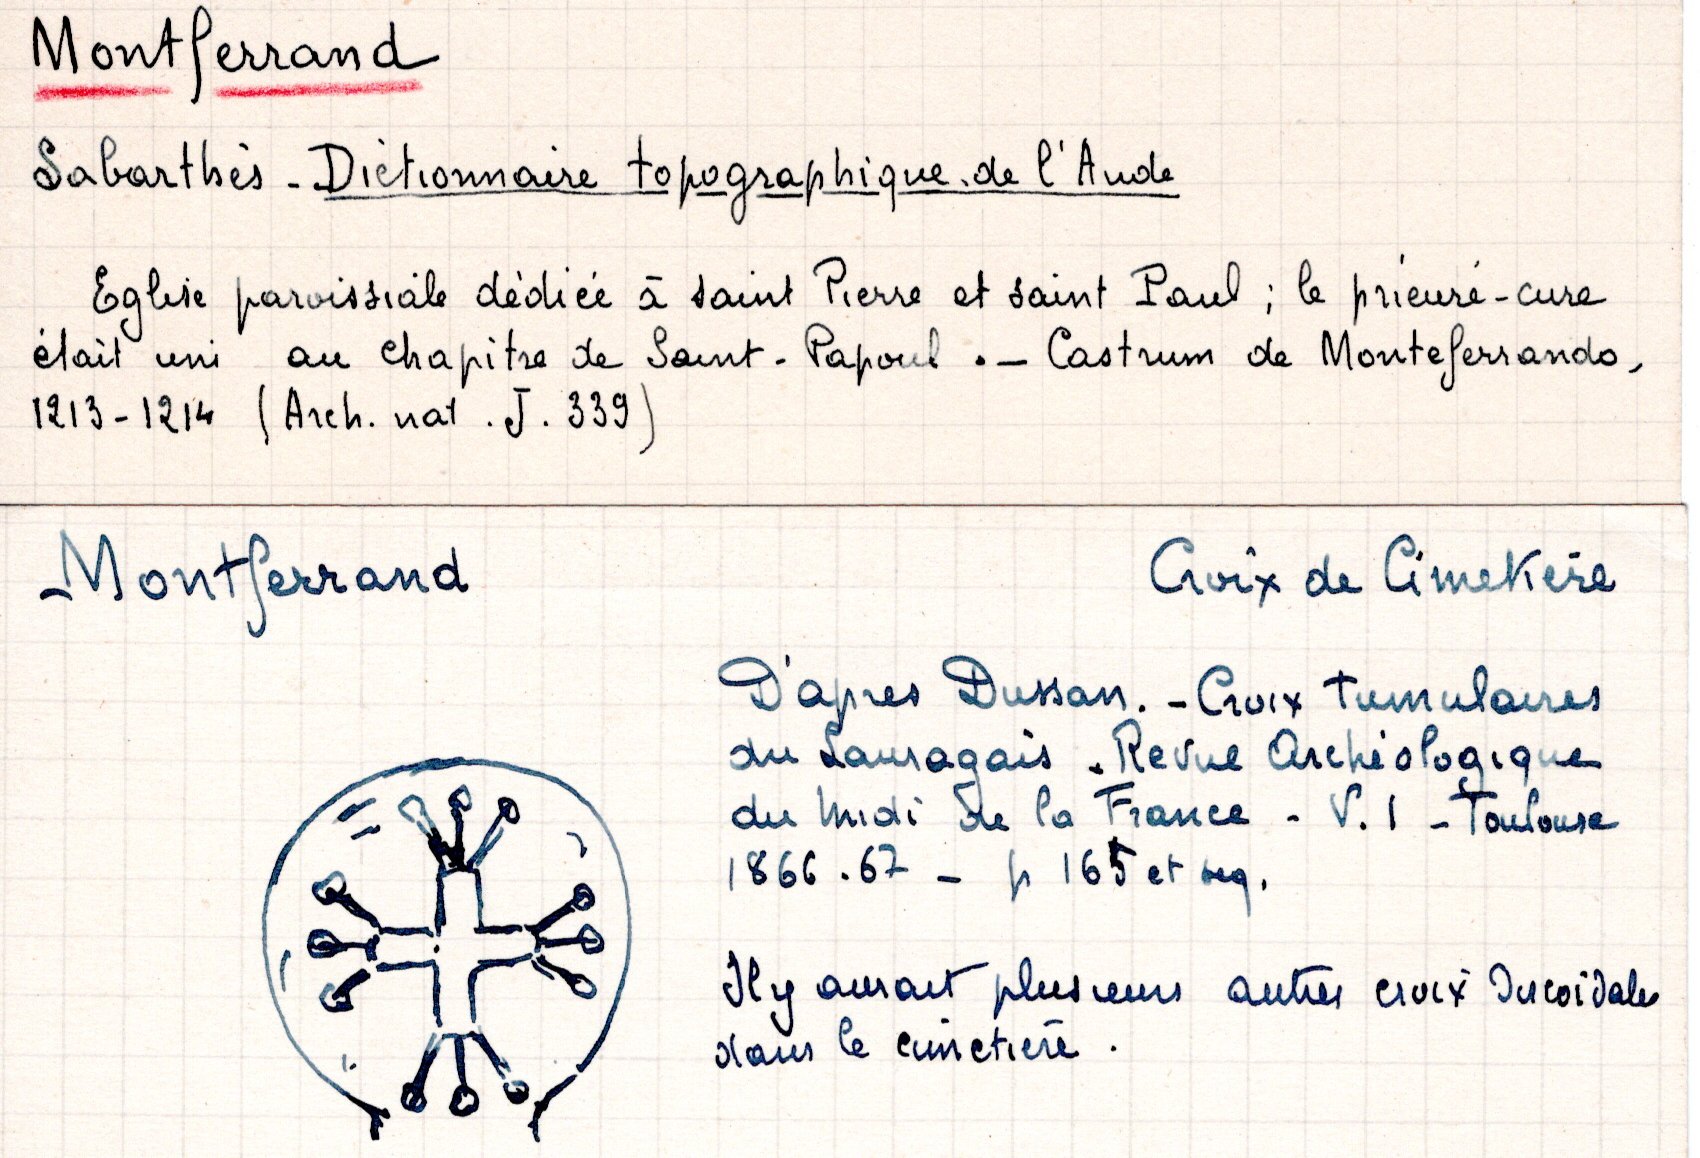 Montferrand
Sabarthès - Dictionnaire topographique de l'Aude
Eglise paroissiale dédiée à saint Pierre et saint Paul ; le prieuré-cure
était uni au chapitre de Saint-Papoul . — Castrum de Monteferrando,
1213-1214 (Arch. nat . J. 339)
Montferrand
Croix de Cimetière
D'après Dussan. - Croix tumulaires
du Lauragais . Revue Archéologique
du Midi de la France - V. 1 - Toulouse
1866 . 67 - p 165 et seq.
Il y aurait plusieurs autres croix discoïdales
dans le cimetière .